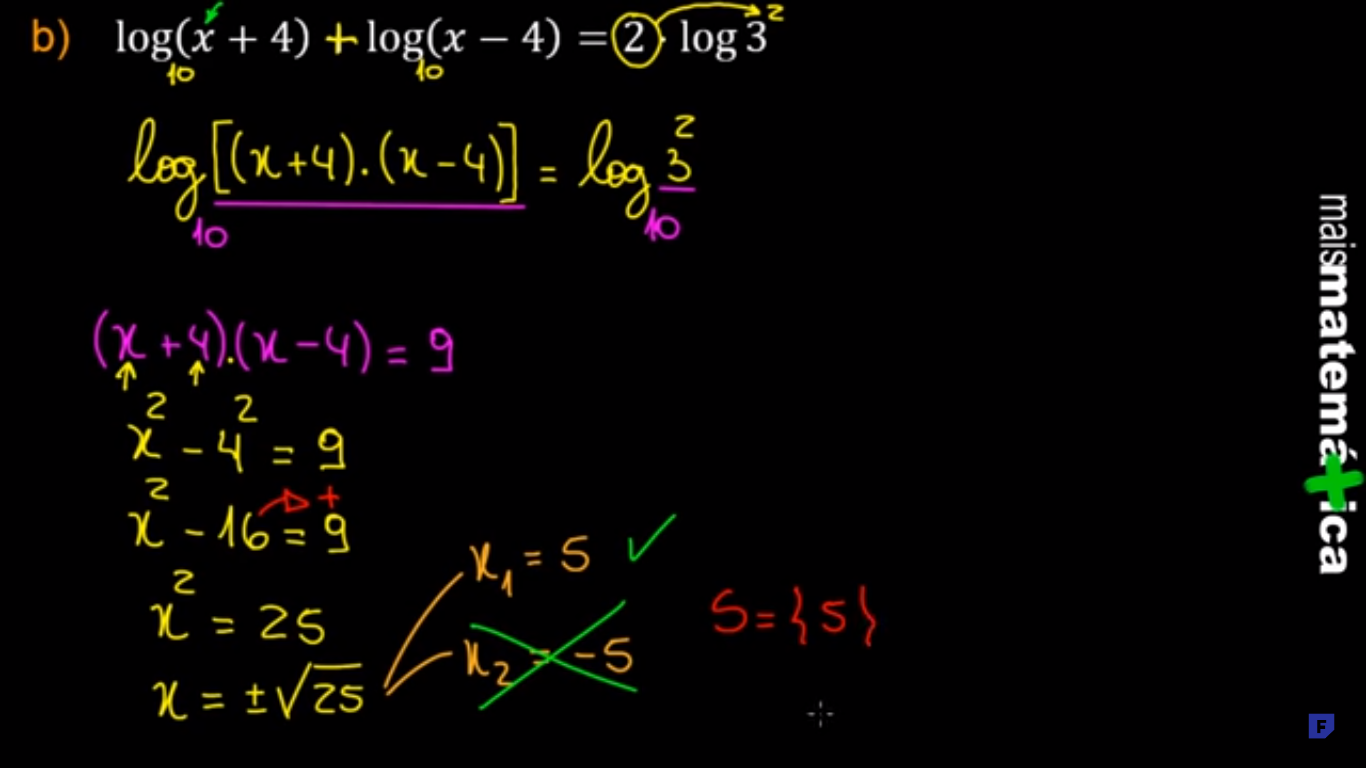 b) log(x + 4) + log(x − 4) = 2 · log 3²
10 10
log₁₀[(x+4).(x-4)] = log₁₀ 3²
(x+4).(x-4) = 9
x² - 4² = 9
x² - 16 = 9 +
x² = 25
x = ±√25
x₁ = 5 ✓
x₂ = -5
S = {5}
maismatemática
F